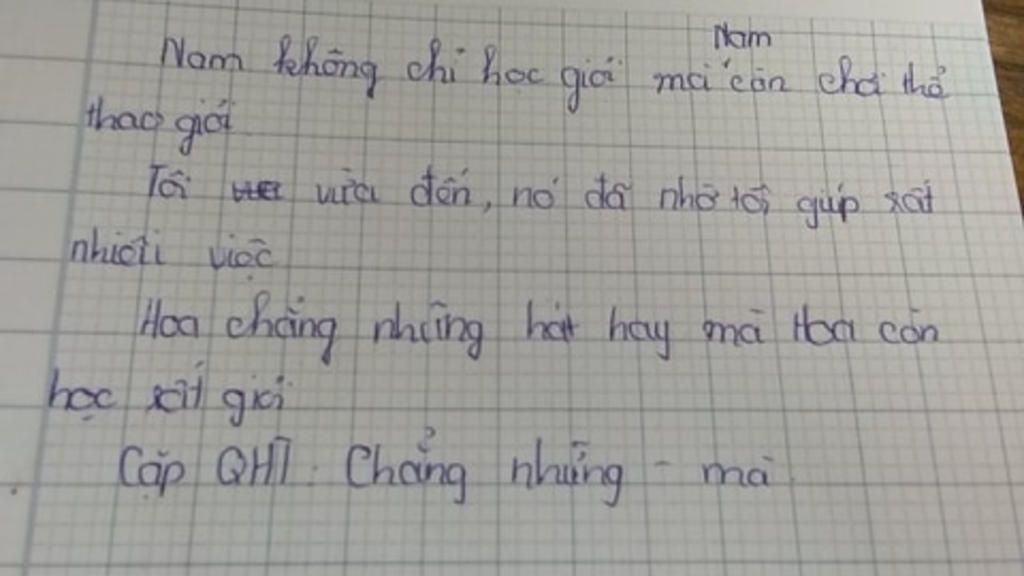 Nam không chỉ học giỏi mà Nam còn chơi thể
thao giỏi
Tôi vừa đến, nó đã nhờ tôi giúp rất
nhiều việc
Hoa chẳng những hát hay mà Hoa còn
học rất giỏi
Cặp QHT: Chẳng những - mà